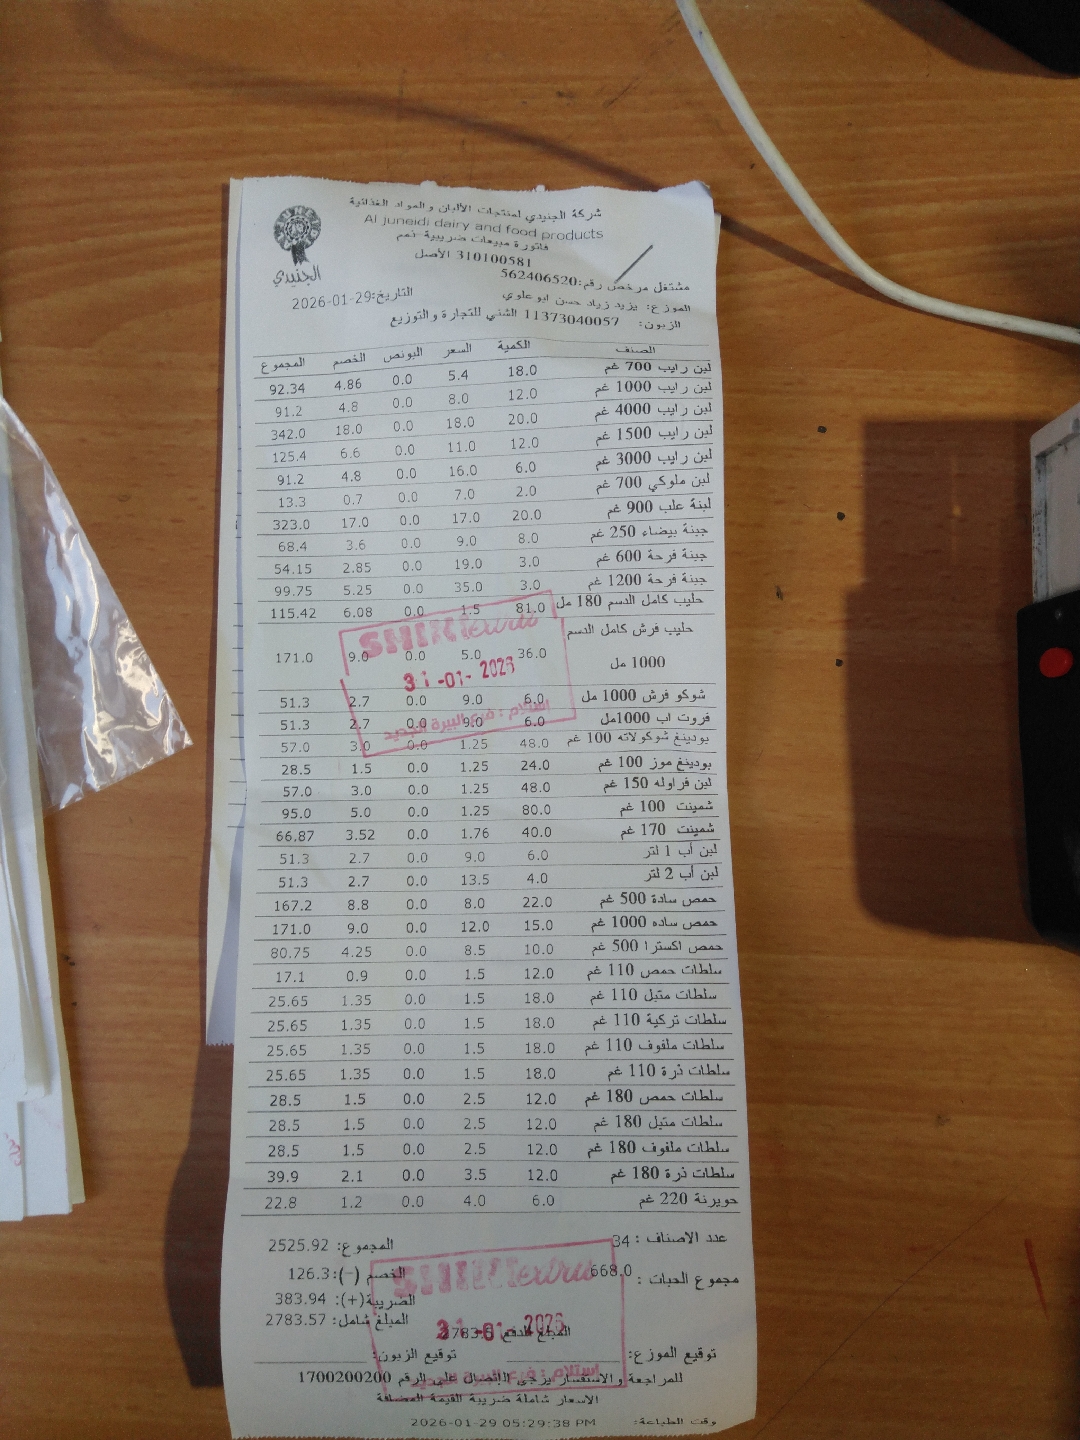 شركة الجنيدي لمنتجات الألبان والمواد الغذائية
Al juneidi dairy and food products
فاتورة مبيعات ضريبية
310100581 الأصل
الجنيدي
مشتغل مرخص رقم:562406520
الموزع: يزيد زياد حسن ابو علوي
التاريخ:29-01-2026
الزبون: 11373040057 الشني للتجارة والتوزيع
الصنف الكمية السعر البونص الخصم المجموع
لبن رايب 700 غم 18.0 5.4 0.0 4.86 92.34
لبن رايب 1000 غم 12.0 8.0 0.0 4.8 91.2
لبن رايب 4000 غم 20.0 18.0 0.0 18.0 342.0
لبن رايب 1500 غم 12.0 11.0 0.0 6.6 125.4
لبن رايب 3000 غم 6.0 16.0 0.0 4.8 91.2
لبن ملوكي 700 غم 2.0 7.0 0.0 0.7 13.3
لبنة علب 900 غم 20.0 17.0 0.0 17.0 323.0
جبنة بيضاء 250 غم 8.0 9.0 0.0 3.6 68.4
جبنة فرحة 600 غم 3.0 19.0 0.0 2.85 54.15
جبنة فرحة 1200 غم 3.0 35.0 0.0 5.25 99.75
حليب كامل الدسم 180 مل 81.0 1.5 0.0 6.08 115.42
حليب فرش كامل الدسم
1000 مل 36.0 5.0 0.0 9.0 171.0
شوكو فرش 1000 مل 6.0 9.0 0.0 2.7 51.3
فروت اب 1000مل 6.0 9.0 0.0 2.7 51.3
بودينغ شوكولاته 100 غم 48.0 1.25 0.0 3.0 57.0
بودينغ موز 100 غم 24.0 1.25 0.0 1.5 28.5
لبن فراوله 150 غم 48.0 1.25 0.0 3.0 57.0
شمينت 100 غم 80.0 1.25 0.0 5.0 95.0
شمينت 170 غم 40.0 1.76 0.0 3.52 66.87
لبن أب 1 لتر 6.0 9.0 0.0 2.7 51.3
لبن أب 2 لتر 4.0 13.5 0.0 2.7 51.3
حمص سادة 500 غم 22.0 8.0 0.0 8.8 167.2
حمص ساده 1000 غم 15.0 12.0 0.0 9.0 171.0
حمص اكسترا 500 غم 10.0 8.5 0.0 4.25 80.75
سلطات حمص 110 غم 12.0 1.5 0.0 0.9 17.1
سلطات متبل 110 غم 18.0 1.5 0.0 1.35 25.65
سلطات تركية 110 غم 18.0 1.5 0.0 1.35 25.65
سلطات ملفوف 110 غم 18.0 1.5 0.0 1.35 25.65
سلطات ذرة 110 غم 18.0 1.5 0.0 1.35 25.65
سلطات حمص 180 غم 12.0 2.5 0.0 1.5 28.5
سلطات متبل 180 غم 12.0 2.5 0.0 1.5 28.5
سلطات ملفوف 180 غم 12.0 2.5 0.0 1.5 28.5
سلطات ذرة 180 غم 12.0 3.5 0.0 2.1 39.9
حويرنة 220 غم 6.0 4.0 0.0 1.2 22.8
31-01-2026
استلام : فرع البيرة الجديد
عدد الاصناف : 34
المجموع: 2525.92
مجموع الحبات : 668.0
الخصم (-):126.3
الضريبة(+): 383.94
المبلغ شامل: 2783.57
المبلغ للدفع
31-01-2026
توقيع الموزع:
توقيع الزبون:
استلام : فرع البيرة الجديد
للمراجعة والاستفسار يرجى الاتصال على الرقم 1700200200
الاسعار شاملة ضريبة القيمة المضافة
وقت الطباعة: 2026-01-29 05:29:38 PM